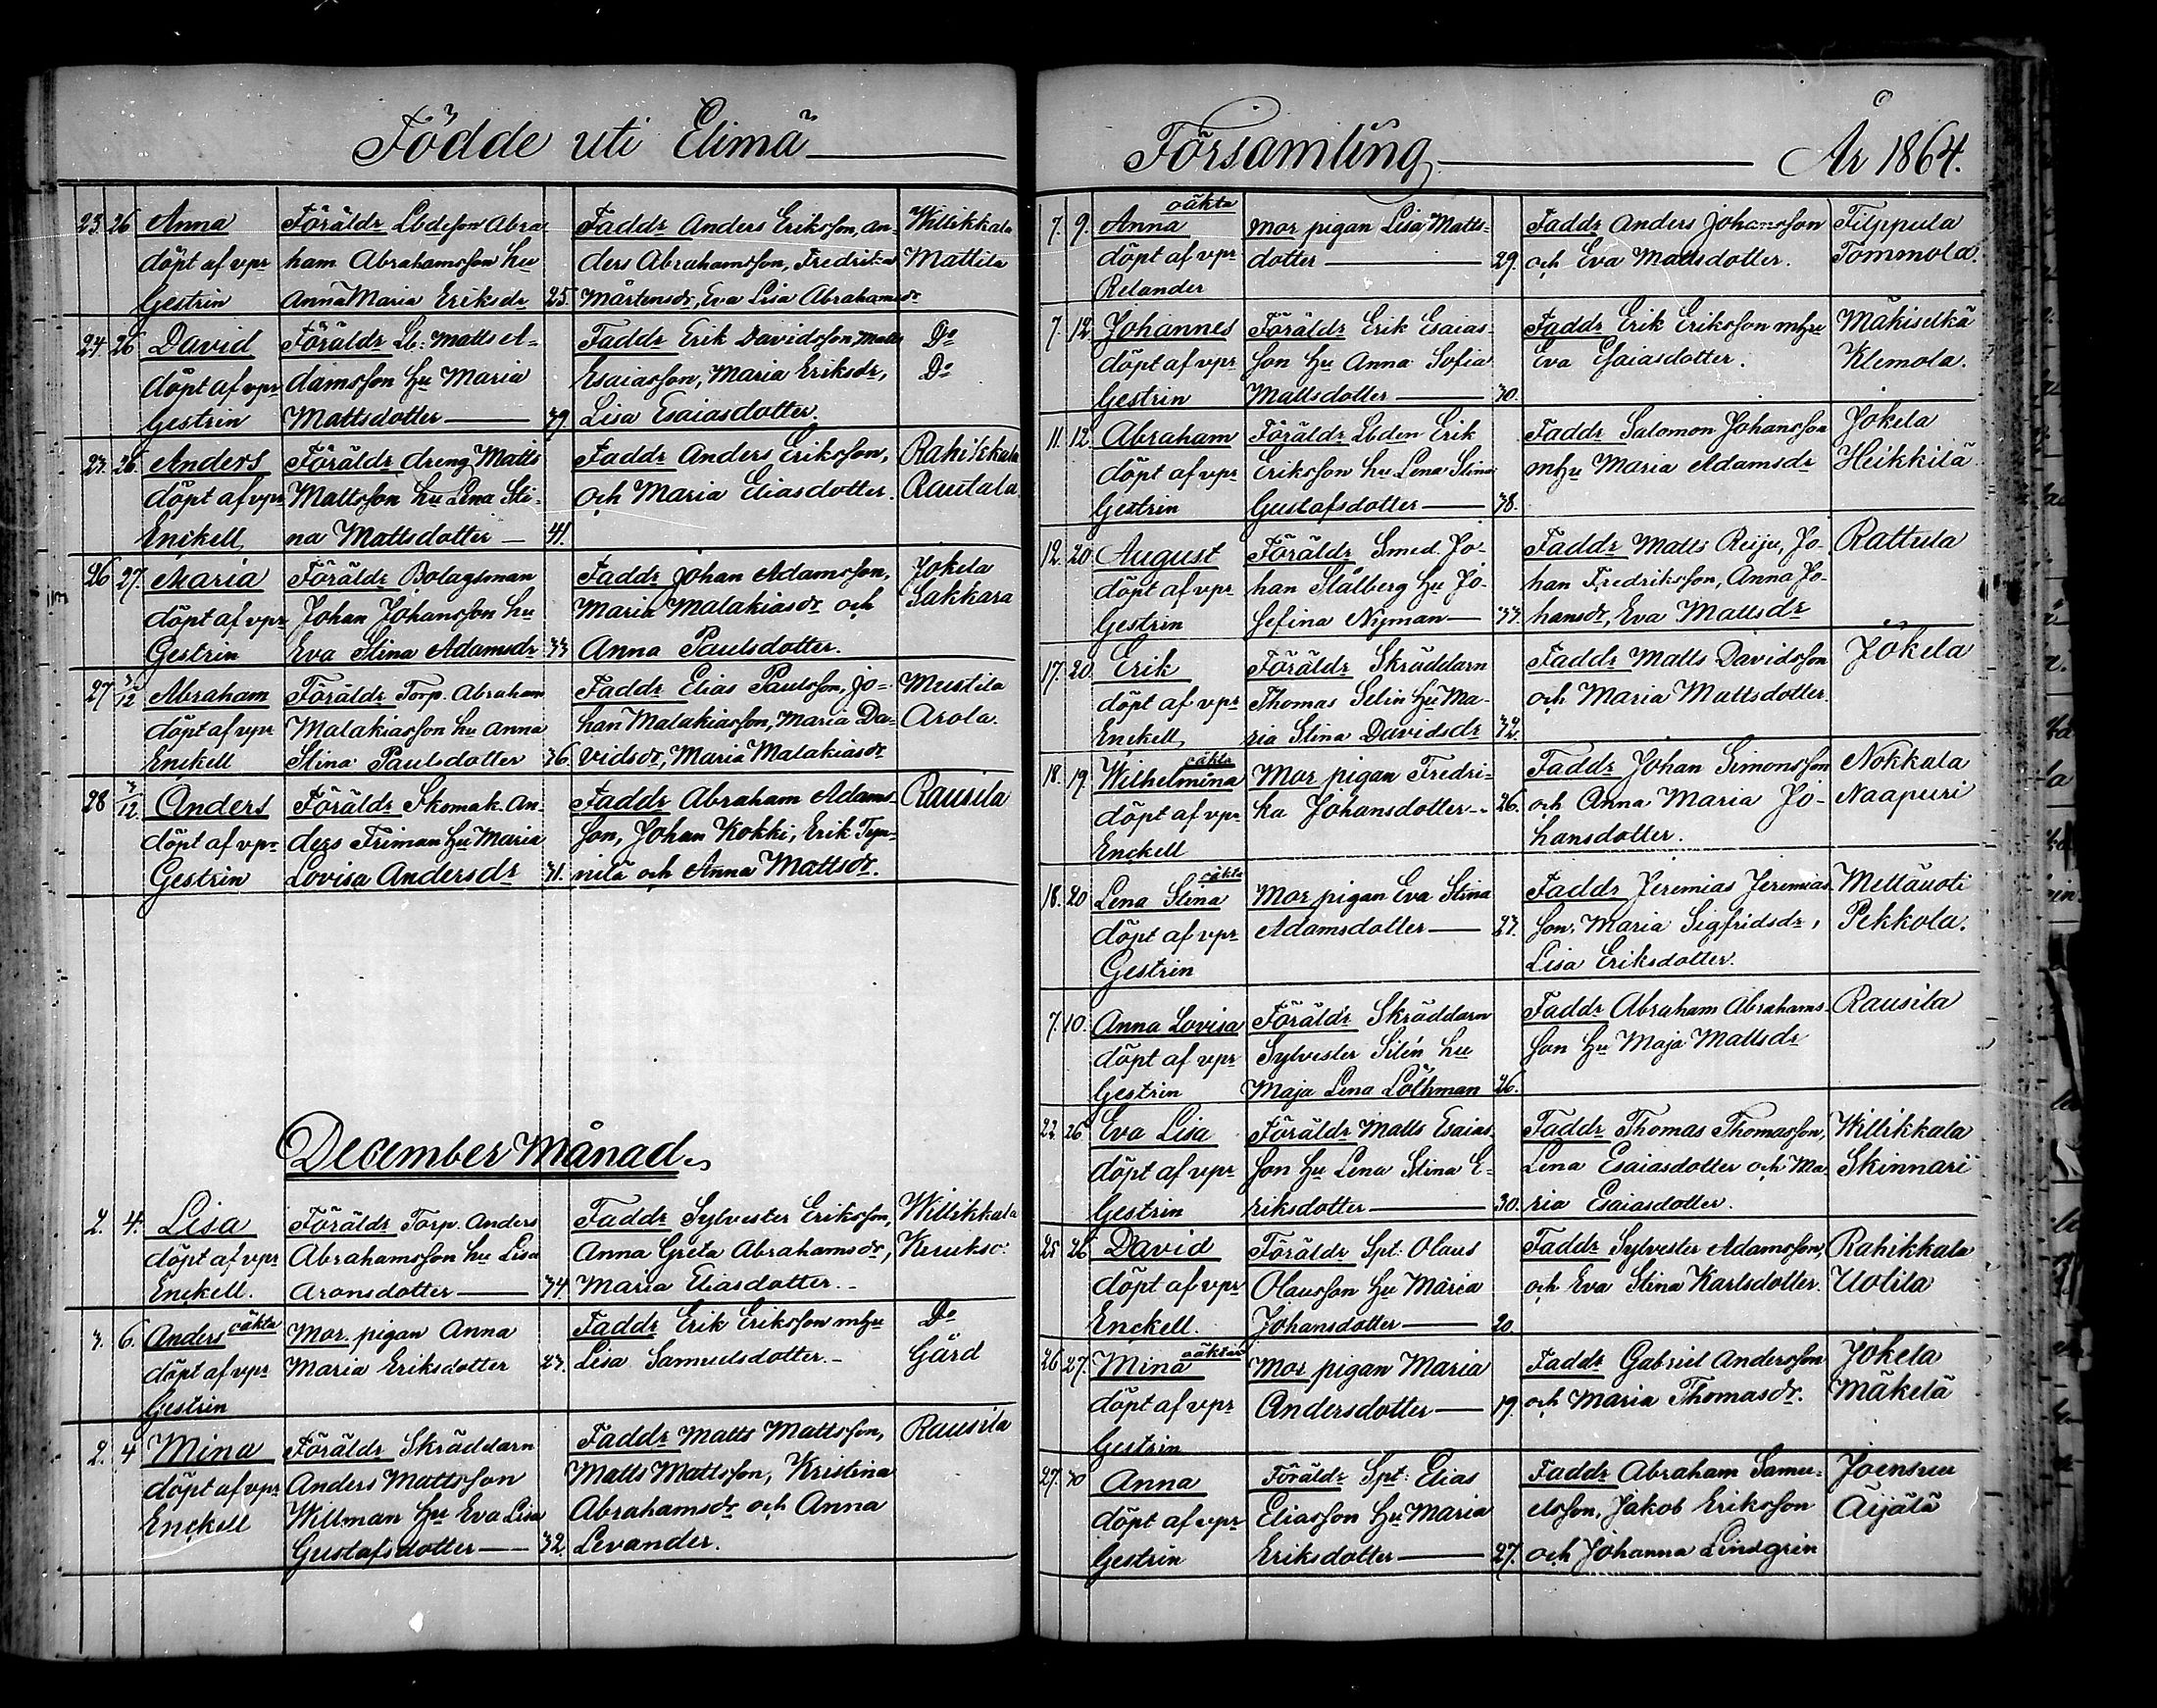 Födde uti Elimä
23. 26 Anna Föräldr Lbdeson Abra- Faddr Anders Eriksson, An- Willikkala
döpt af vpr ham Abrahamsson hu ders Abrahamsson, Fredrika Mattila
Gestrin Anna Maria Eriksdr 25. Mårtensdr, Eva Lisa Abrahamsdr
24. 26 David Föräldr Lb: Matts A- Faddr Erik Davidsson, Matts Do
döpt af vpr damsson Hu Maria Esaiasson, Maria Eriksdr, Do
Gestrin Mattsdotter 39. Lisa Esaiasdotter.
23. 26. Anders Föräldr dreng Matts Faddr Anders Eriksson, Rahikkala
döpt af vpr Mattsson hu Lena Sti- och Maria Eliasdotter. Rautala
Enckell na Mattsdotter 41.
26 27. Maria Föräldr Bolagsman Faddr Johan Adamsson, Jokela
döpt af vpr Johan Johansson hu Maria Malakiasdr och Sakkara
Gestrin Eva Stina Adamsdr 33 Anna Paulsdotter.
27 3/12 Abraham Föräldr Torp. Abraham Faddr Elias Paulsson, Jo- Mustila
döpt af vpr Malakiasson hu Anna han Malakiasson, Maria Da- Arola.
Enckell Stina Paulsdotter 36. vidsdr, Maria Malakiasdr
28 3/12. Anders Föräldr Skomak. An- Faddr Abraham Adams- Rausila
döpt af vpr ders Friman Hu Maria son, Johan Kokki, Erik Tyn-
Gestrin Lovisa Andersdr 31. nilä och Anna Mattsdr.
December Månad
2. 4. Lisa Föräldr Torp. Anders Faddr Sylvester Eriksson, Willikkala
döpt af vpr Abrahamsson hu Lisa Anna Greta Abrahamsdr,
Enckell. Aronsdotter 34 Maria Eliasdotter.
3. 6. Anders oäkta Mor. pigan Anna Faddr Erik Eriksson mhu Do
döpt af vpr Maria Eriksdotter 23. Lisa Samuelsdotter. Gård
Gestrin
2. 4 Mina Föräldr Skräddarn Faddr Matts Mattsson, Rausila
döpt af vpr Anders Mattsson Matts Mattsson, Kristina
Enckell Willman Hu Eva Lisa Abrahamsdr och Anna
Gustafsdotter 32. Levander.
Församling År 1864.
oäkta
7. 9. Anna Mor pigan Lisa Matts- Faddr Anders Johansson Tilppula
döpt af vpr dotter 29. och Eva Mattsdotter. Tommola.
Relander
7. 12. Johannes Föräldr Erik Esaias- Faddr Erik Eriksson mhu Mäkiselkä
döpt af vpr son Hu Anna Sofia Eva Esaiasdotter. Klemola.
Gestrin Mattsdotter 30.
11. 12. Abraham Föräldr Lbden Erik Faddr Salomon Johansson Jokela
döpt af vpr Eriksson hu Lena Stina mhu Maria Adamsdr Heikkilä
Gestrin Gustafsdotter 38.
12. 20. August Föräldr Smed. Jo- Faddr Matts Reiju, Jo- Rattula
döpt af vpr han Stålberg Hu Jo- han Fredriksson, Anna Jo-
Gestrin sefina Nyman 33. hansdr, Eva Mattsdr
17. 20. Erik Föräldr Skräddarn Faddr Matts Davidsson Jokela
döpt af vpr Thomas Selin Hu Ma- och Maria Mattsdotter.
Enckell ria Stina Davidsdr 32.
oäkta
18. 19. Wilhelmina Mor pigan Fredri- Faddr Johan Simonsson Nokkala
döpt af vpr ka Johansdotter 26. och Anna Maria Jo- Naapuri
Enckell hansdotter.
oäkta
18. 20 Lena Stina Mor pigan Eva Stina Faddr Jeremias Jeremias- Mettäuoti
döpt af vpr Adamsdotter 23. son, Maria Sigfridsdr, Pekkola.
Gestrin Lisa Eriksdotter.
7. 10. Anna Lovisa Föräldr Skräddarn Faddr Abraham Abrahams- Rausila
döpt af vpr Sylvester Silén hu son Hu Maja Mattsdr
Gestrin Maja Lena Löthman 26.
22 26 Eva Lisa Föräldr Matts Esaias- Faddr Thomas Thomasson, Willikkala
döpt af vpr son Hu Lena Stina E- Lena Esaiasdotter och Ma- Skinnari
Gestrin riksdotter 30. ria Esaiasdotter.
25 26 David Föräldr Spt: Olaus Faddr Sylvester Adamsson, Rahikkala
döpt af vpr Olausson Hu Maria och Eva Stina Karlsdotter. Uolila
Enckell. Johansdotter 20.
26 27. Mina oäkta Mor pigan Maria Faddr Gabriel Andersson Jokela
döpt af vpr Andersdotter 19. och Maria Thomasdr. Mäkelä
Gestrin
27. 30 Anna Föräldr Spt: Elias Faddr Abraham Samu- Joensuu
döpt af vpr Eliasson Hu Maria elsson, Jakob Eriksson Äijälä
Gestrin Eriksdotter 27. och Johanna Lindgrin